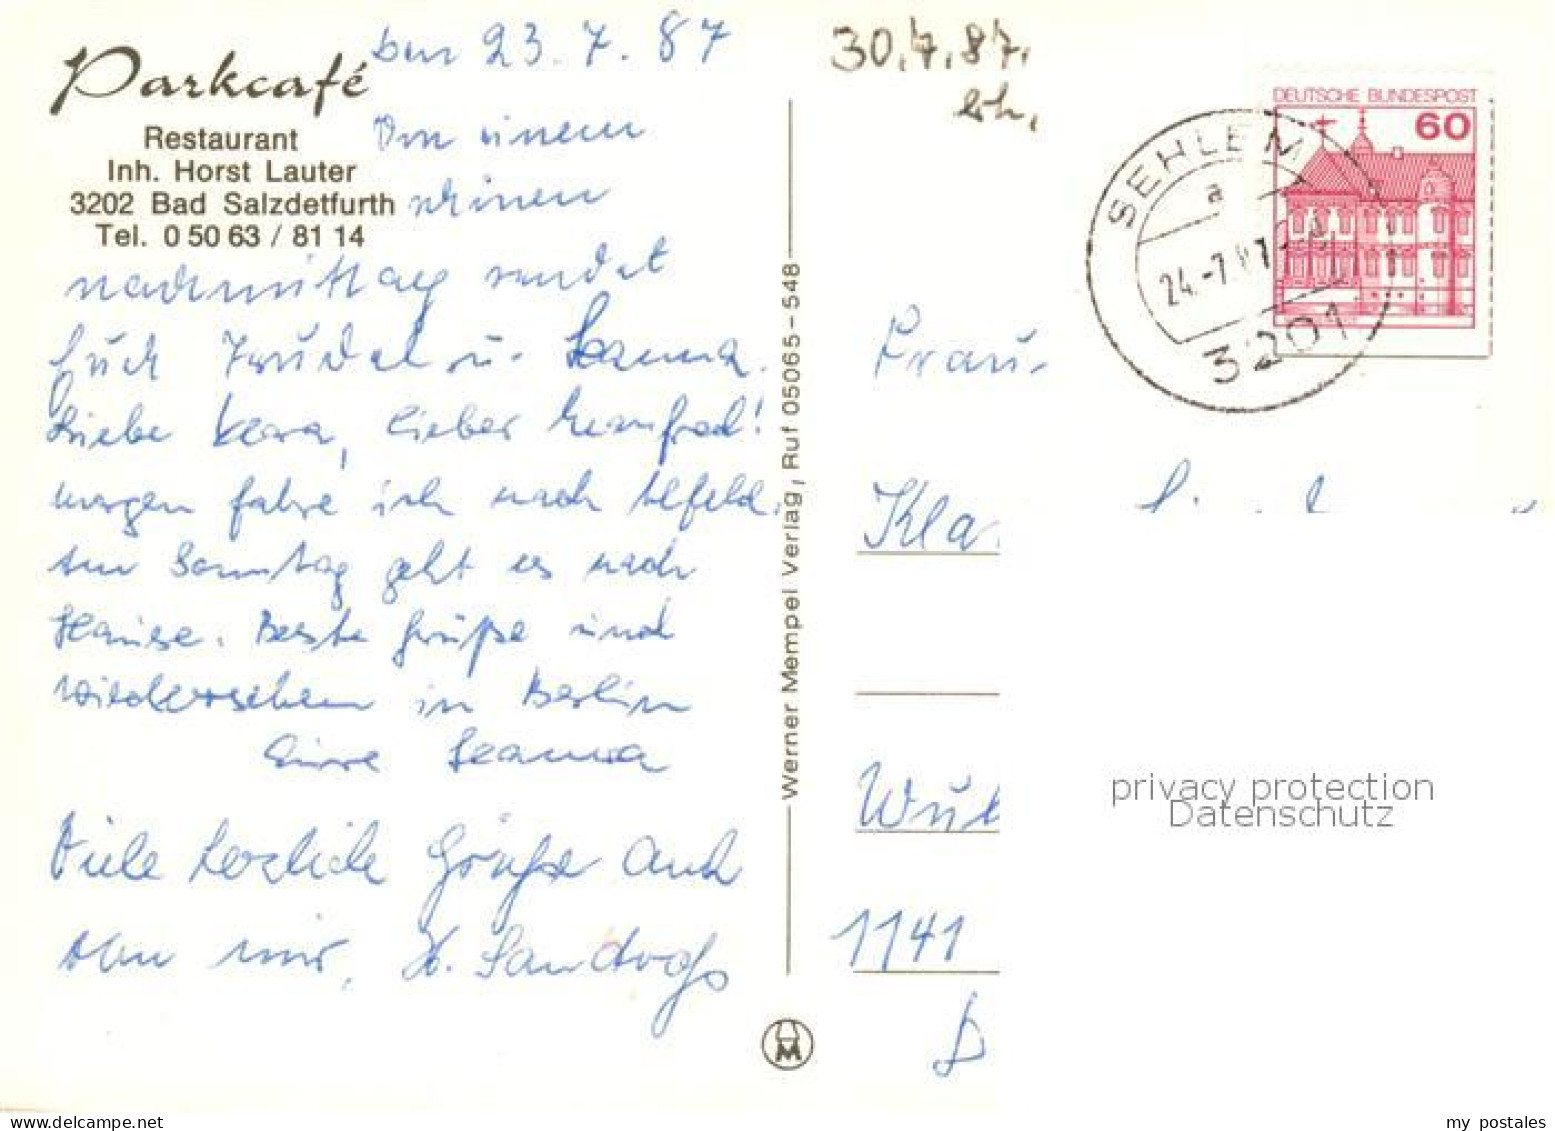 Parkcafé
Restaurant
Inh. Horst Lauter
3202 Bad Salzdetfurth
Tel. 0 50 63 / 81 14
den 23.7.87
Von einem
schönen
nachmittag sendet
Euch Trudel u.
Liebe Vera, lieber Manfred!
morgen fahre ich nach Alfeld.
Am Sonntag geht es nach
Hause. Beste Grüße und
Wiedersehen in Berlin
Eure
Viele herzliche Grüße Auch
von mir, H. Sandvoß
Werner Mempel Verlag, Ruf 05065-548
30.7.87.
DEUTSCHE BUNDESPOST
60
SEHLEM
a
24.-7.87
3201
Frau
Kla
Wuh
1141
B
privacy protection
Datenschutz
my postales